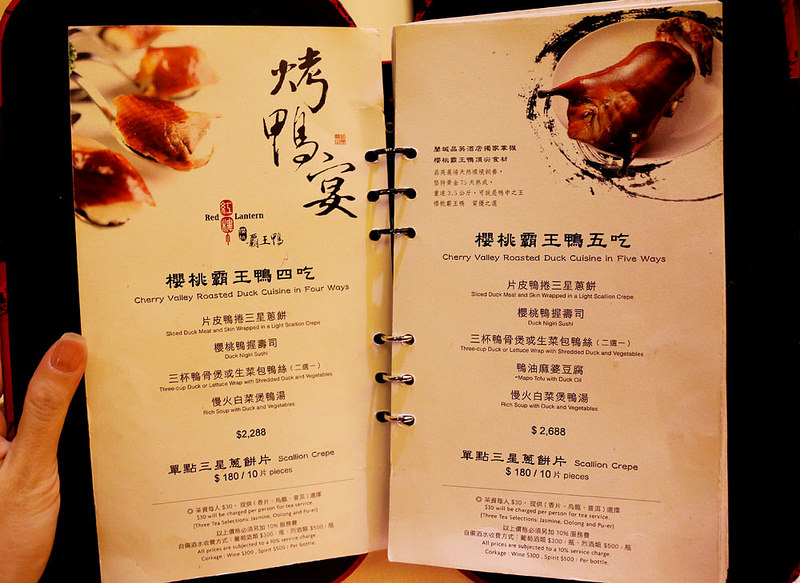 烤鴨宴
Red 紅樓 Lantern
霸王鴨
櫻桃霸王鴨四吃
Cherry Valley Roasted Duck Cuisine in Four Ways
片皮鴨捲三星蔥餅
Sliced Duck Meat and Skin Wrapped in a Light Scallion Crepe
櫻桃鴨握壽司
Duck Nigiri Sushi
三杯鴨骨煲或生菜包鴨絲(二選一)
Three-cup Duck or Lettuce Wrap with Shredded Duck and Vegetables
慢火白菜煲鴨湯
Rich Soup with Duck and Vegetables
$2,288
單點三星蔥餅片 Scallion Crepe
$ 180 / 10 片 pieces
◎ 茶資每人 $30, 提供(香片、烏龍、普洱)選擇
$30 will be charged per person for tea service.
(Three Tea Selections: Jasmine, Oolong and Pu-er)
以上價格必須另加 10% 服務費
自備酒水收費方式:葡萄酒類 $300 / 瓶、烈酒類 $500 / 瓶
All prices are subjected to a 10% service charge.
Corkage : Wine $300 , Spirit $500 / Per bottle.
蘭城晶英酒店獨家掌握
櫻桃霸王鴨頂尖食材
櫻桃霸王鴨五吃
Cherry Valley Roasted Duck Cuisine in Five Ways
片皮鴨捲三星蔥餅
Sliced Duck Meat and Skin Wrapped in a Light Scallion Crepe
櫻桃鴨握壽司
Duck Nigiri Sushi
三杯鴨骨煲或生菜包鴨絲(二選一)
Three-cup Duck or Lettuce Wrap with Shredded Duck and Vegetables
鴨油麻婆豆腐
Mapo Tofu with Duck Oil
慢火白菜煲鴨湯
Rich Soup with Duck and Vegetables
$ 2,688
單點三星蔥餅片 Scallion Crepe
$ 180 / 10 片 pieces
◎ 茶資每人 $30, 提供(香片、烏龍、普洱)選擇
$30 will be charged per person for tea service.
(Three Tea Selections: Jasmine, Oolong and Pu-er)
以上價格必須另加 10% 服務費
自備酒水收費方式:葡萄酒類 $300 / 瓶、烈酒類 $500 / 瓶
All prices are subjected to a 10% service charge.
Corkage : Wine $300 , Spirit $500 / Per bottle.